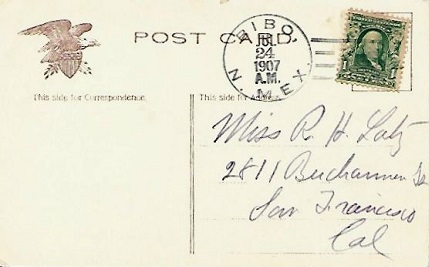 POST CARD.
SIBO,
JUL
24
1907
A.M.
N. MEX.
This side for Correspondence.
This side for Address.
Miss R. H. Latz
2811 Buchannen St
San Francisco
Cal